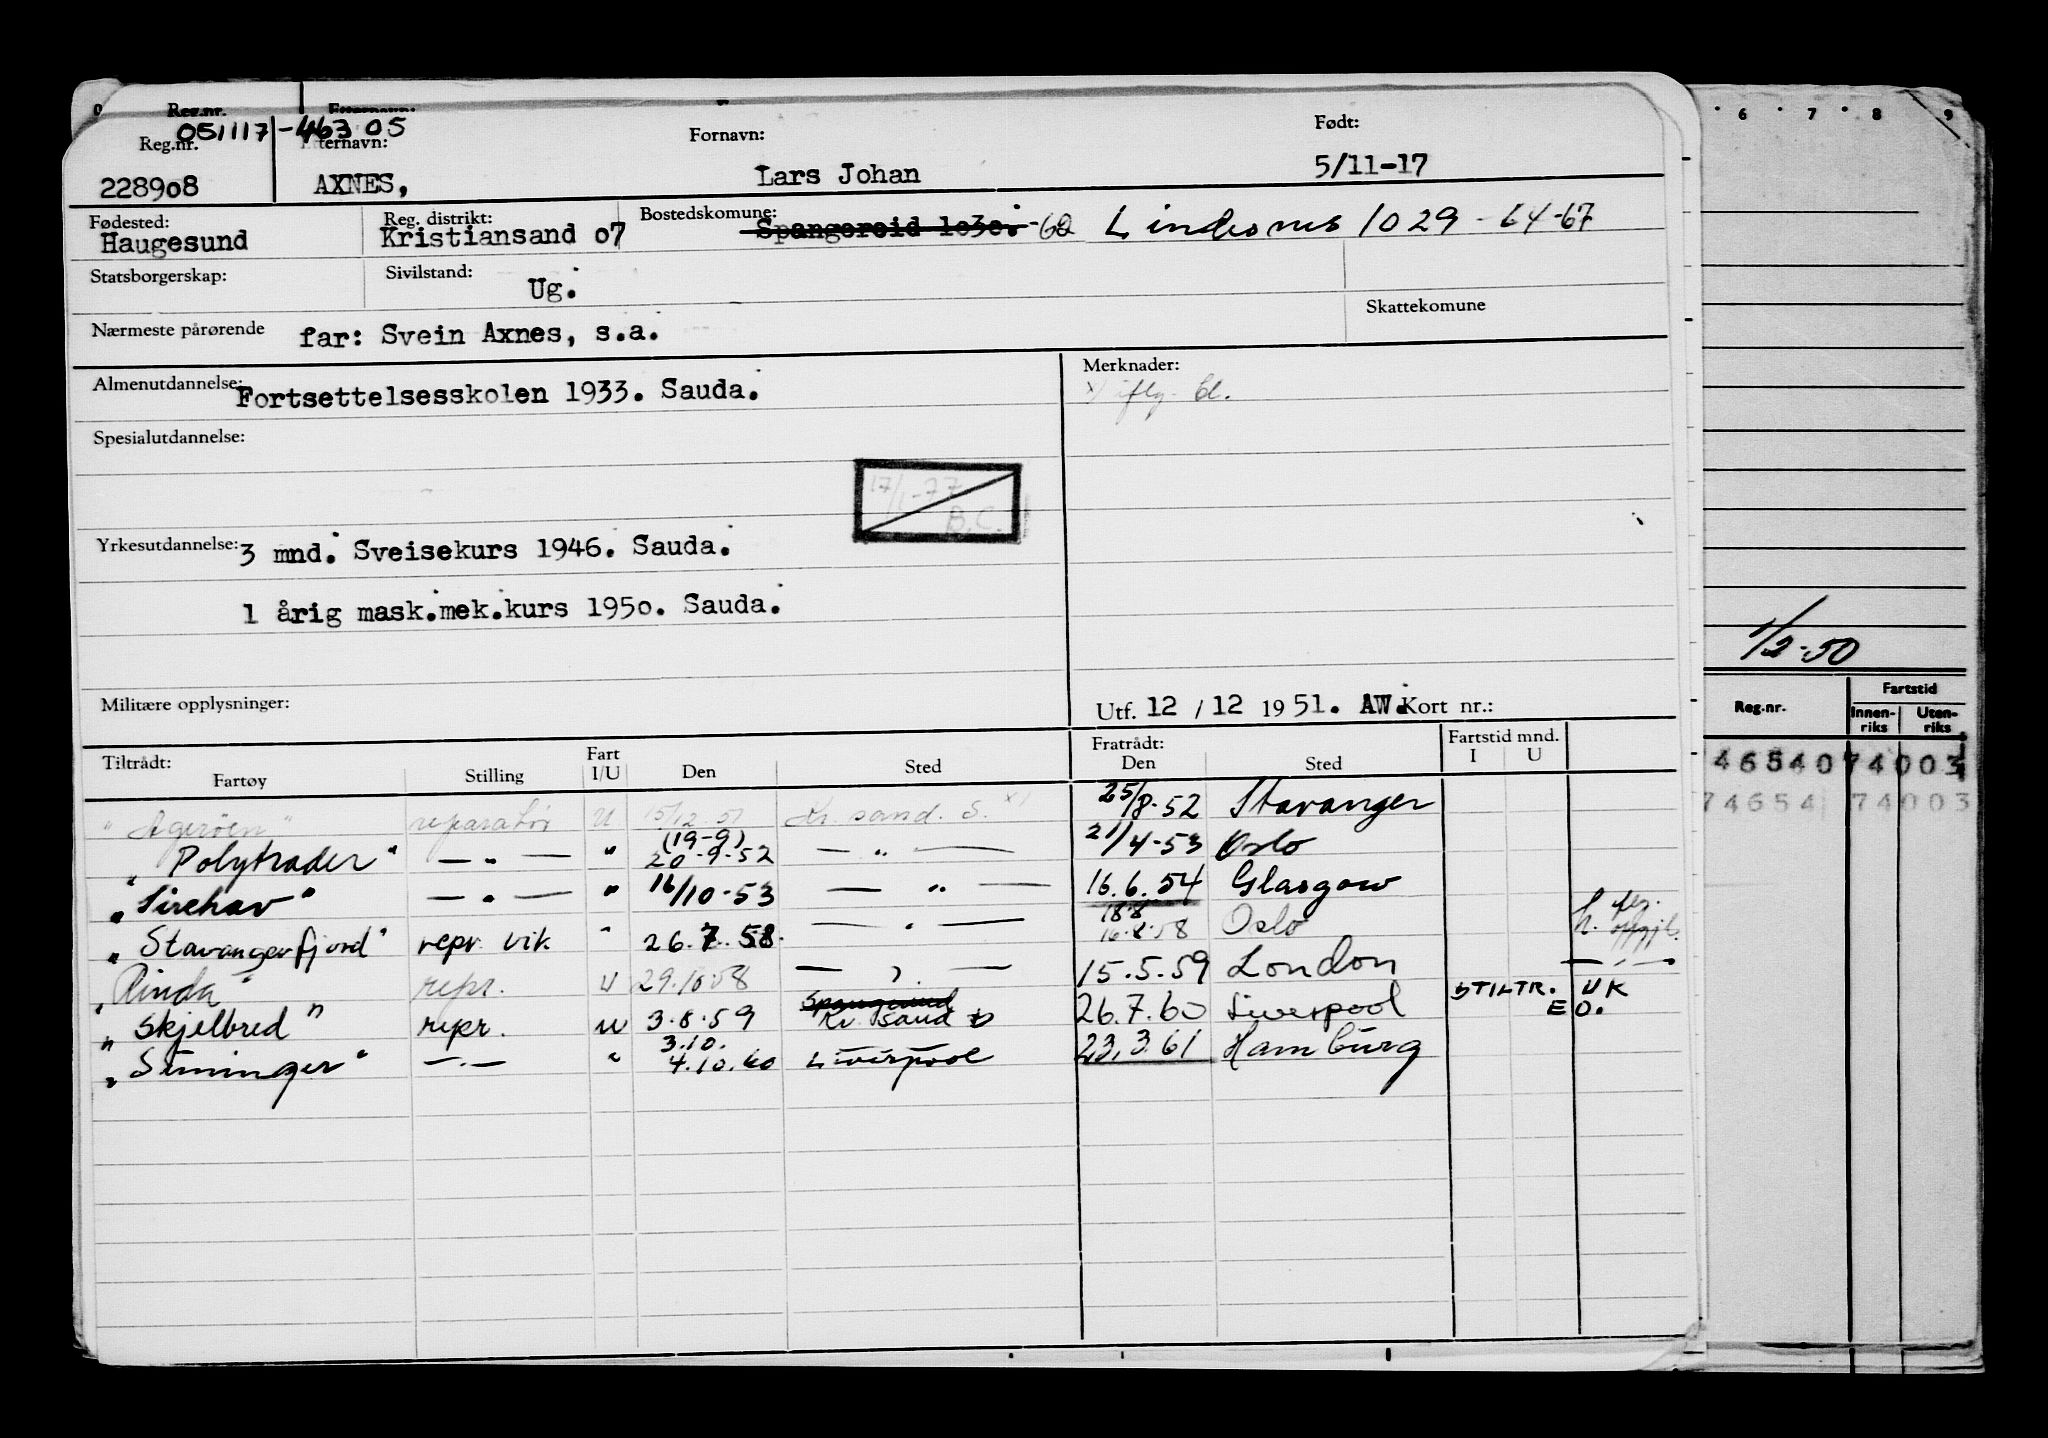 Reg.nr.
051117-46305
Reg.nr. Etternavn: Fornavn: Født:
228908 AXNES, Lars Johan 5/11-17
Fødested: Reg. distrikt: Bostedskomune:
Haugesund Kristiansand 07 Spangereid 1030. -62 Lindesnes 1029 - 64-67
Statsborgerskap: Sivilstand: Ug.
Skattekomune
Nærmeste pårørende far: Svein Axnes, s.a.
Almenutdannelse: Fortsettelsesskolen 1933. Sauda. Merknader:
x) iflg. bl.
Spesialutdannelse:
17/1-77
B.C.
Yrkesutdannelse: 3 mnd. Sveisekurs 1946. Sauda.
1 årig mask.mek.kurs 1950. Sauda.
Militære opplysninger: Utf. 12 / 12 19 51. AW. Kort nr.:
Tiltrådt: Fart Fratrådt: Fartstid mnd.
Fartøy Stilling I/U Den Sted Den Sted I U
"Agerøen" reparatør U 15/12.51 Kr.sand. S. x) 25/8-52 Stavanger
(19-9)
"Polytrader" — " — " 20-9-52 — " — 21/4-53 Oslo
"Sirehav" — " — " 16/10-53 — " — 16.6.54 Glasgow
18.8
"Stavangerfjord" repr. vik. " 26.7.58. — " — 16.8.58 Oslo
"Rinda" repr. U 29.10.58 — " — 15.5.59 London
Spangereid
"Skjelbred" repr. U 3.8.59 Kr.sand S 26.7.60 Liverpool STILTR. UK
E O.
3.10.
— . — " 4.10.60 Liverpool 23.3.61 Hamburg
6 7 8 9
1/2-50
Reg.nr. Fartstid
Innen-riks Uten-riks
46540 74003
74654 74003